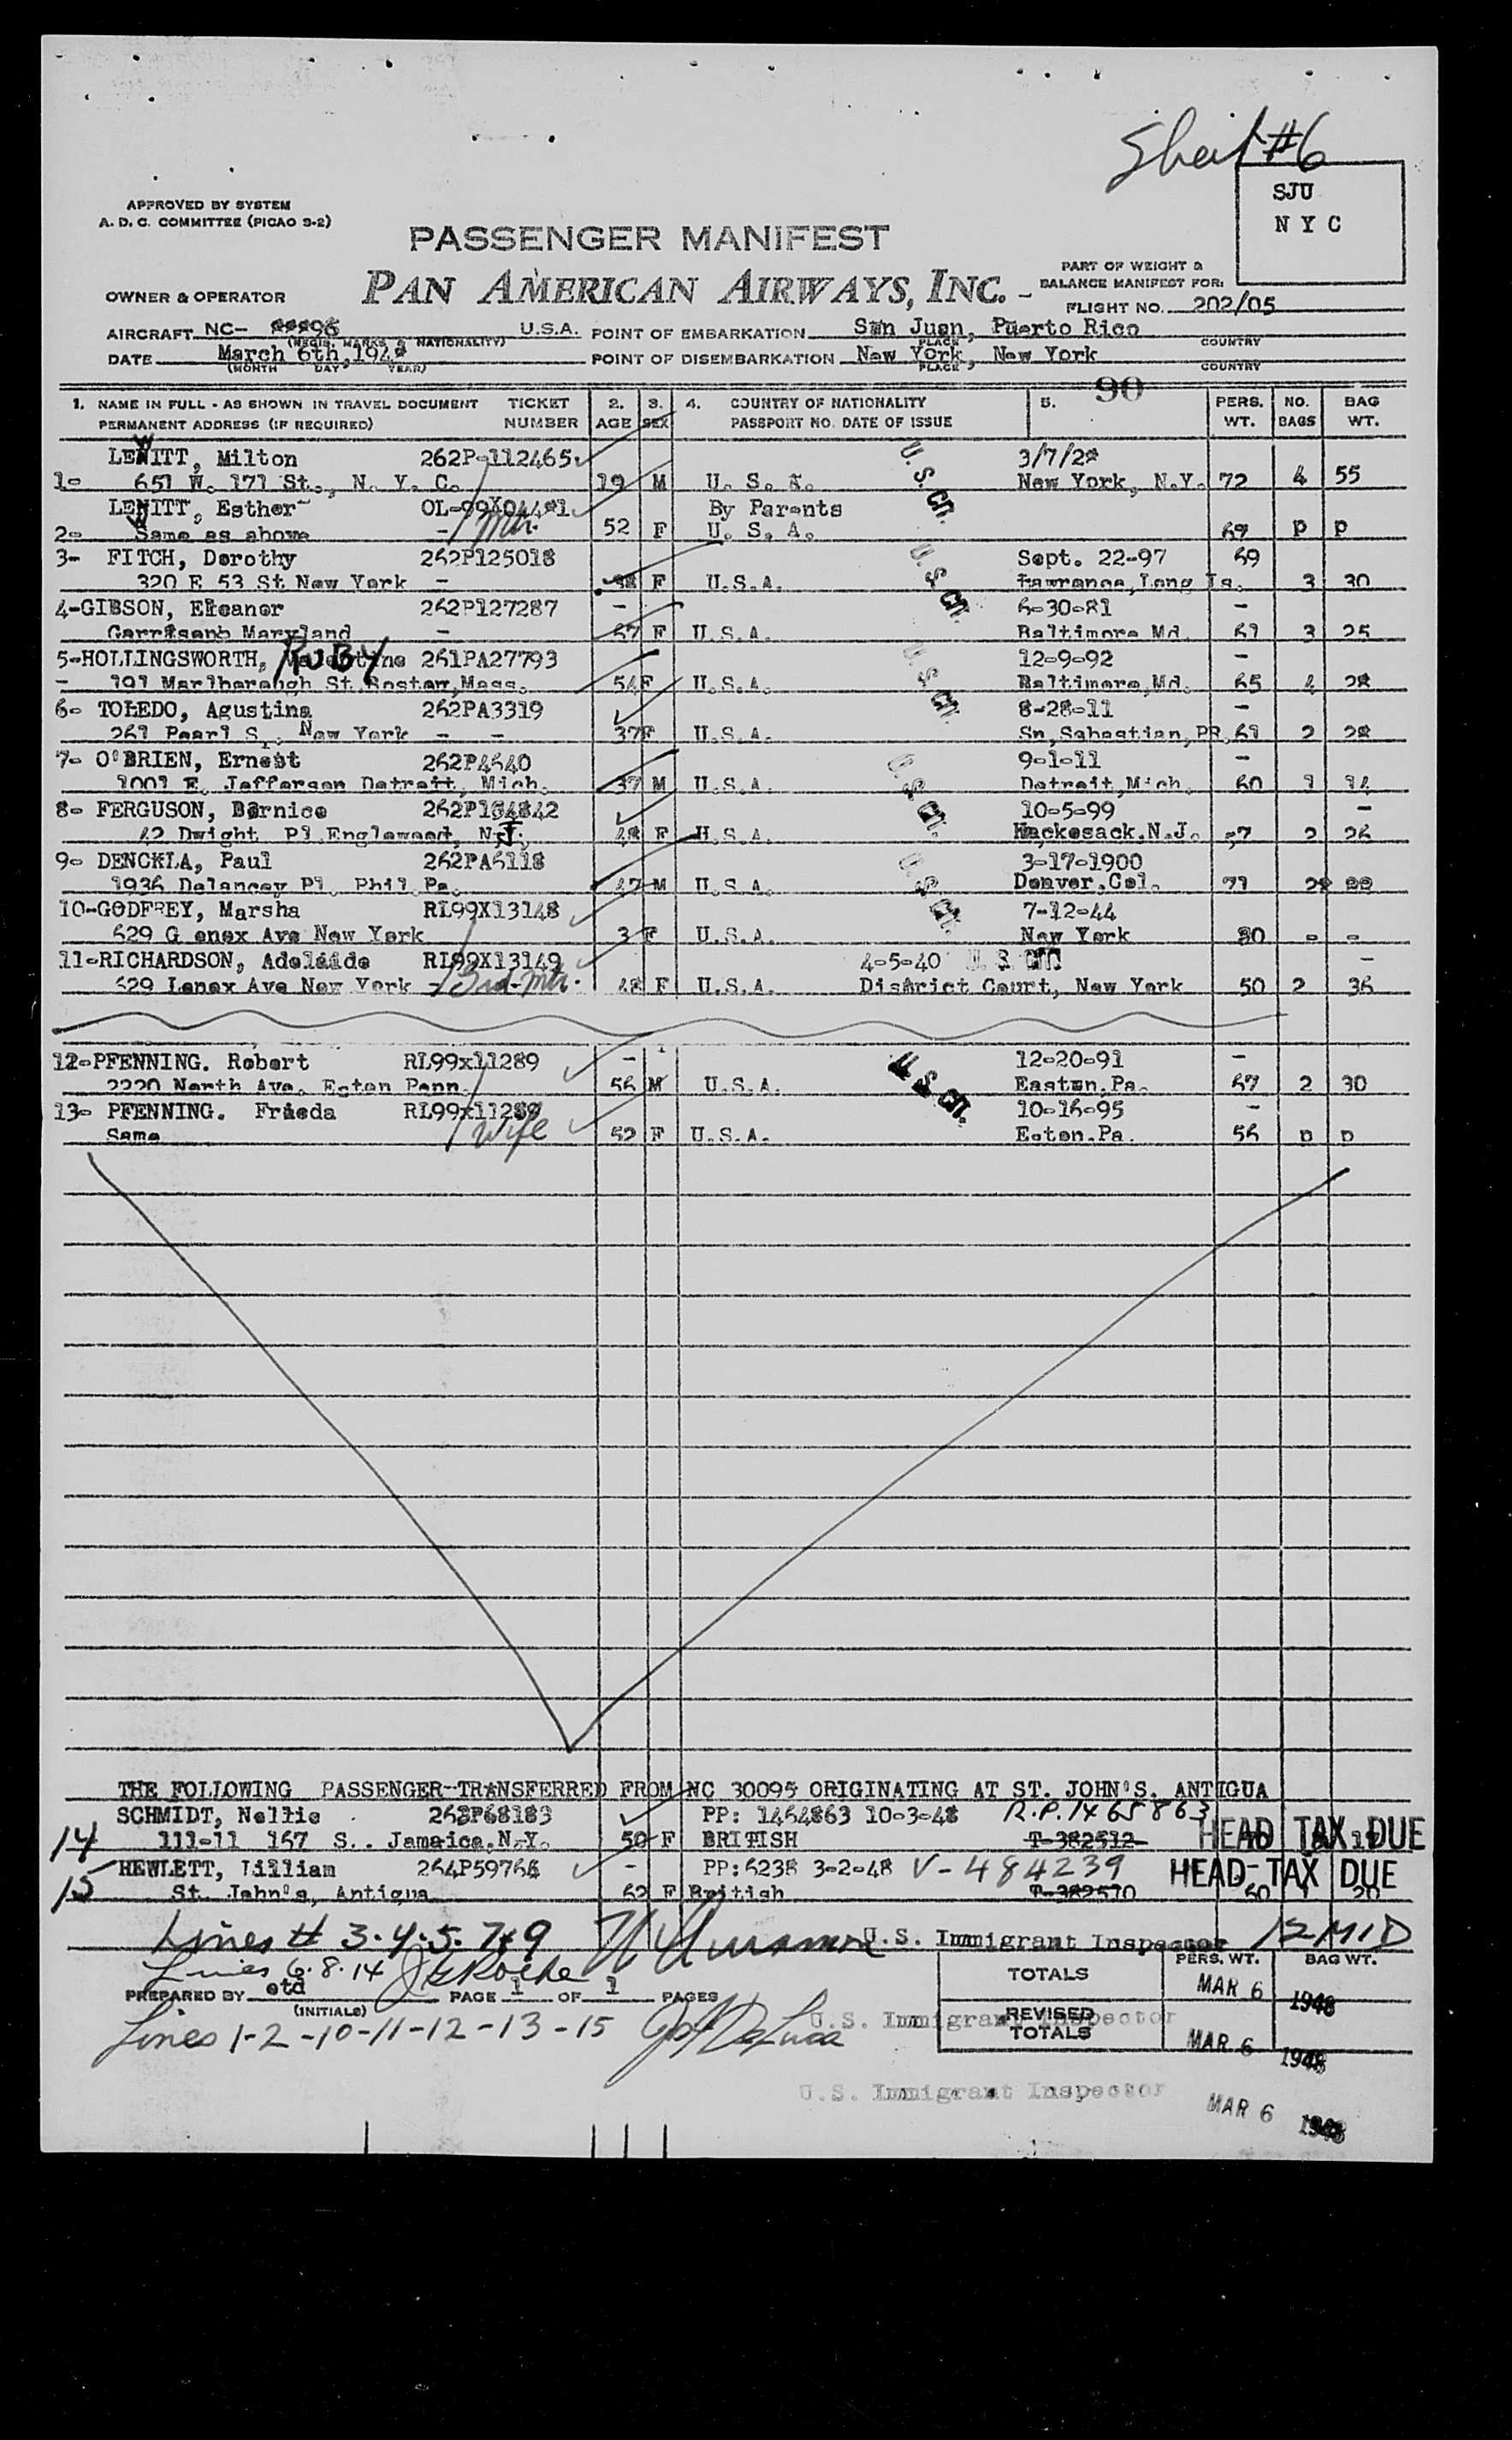 Sheet #6
SJU
N Y C
APPROVED BY SYSTEM
A. D. C. COMMITTEE (PICAO 3-2)
PASSENGER MANIFEST
PAN AMERICAN AIRWAYS, INC.
PART OF WEIGHT &
BALANCE MANIFEST FOR:
OWNER & OPERATOR
FLIGHT NO. 202/05
AIRCRAFT NC- U.S.A. POINT OF EMBARKATION San Juan, Puerto Rico
(REGIS. MARKS & NATIONALITY) PLACE COUNTRY
DATE March 6th, POINT OF DISEMBARKATION New York, New York
(MONTH DAY YEAR) PLACE COUNTRY
90
1. NAME IN FULL - AS SHOWN IN TRAVEL DOCUMENT TICKET 2. 3. 4. COUNTRY OF NATIONALITY 5. PERS. NO. BAG
PERMANENT ADDRESS (IF REQUIRED) NUMBER AGE SEX PASSPORT NO. DATE OF ISSUE WT. BAGS WT.
LEWITT, Milton 262P-112465 U.S. Cit.
1- 651 W. 171 St., N. Y. C. 19 M U. S. A. New York, N.Y. 72 4 55
LEWITT, Esther By Parents
2- Same as above - Mtr. 52 F U. S. A. 69 P P
3- FITCH, Dorothy 262P125018 U.S. Cit. Sept. 22-97 69
320 E 53 St New York - F U.S.A. Lawrence, Long Is. 3 30
4-GIBSON, Eleanor 262P127287 - 6-30-81 -
Maryland - 67 F U.S.A. Baltimore Md. 3 25
5-HOLLINGSWORTH, RUBY 261PA27793 U.S. Cit. 12-9-92 -
191 Marlborough St. Boston, Mass. 54 F U.S.A. Baltimore, Md. 65 4
6- TOLEDO, Agustina 262PA3319 8-28-11 -
261 Pearl S., New York - - 37 F U.S.A. Sn, Sebastian, PR. 2
7- O'BRIEN, Ernest 262P4640 U.S. Cit. 9-1-11 -
1001 E. Jefferson Detroit, Mich. 37 M U.S.A. Detroit, Mich. 60 1 14
8- FERGUSON, Bernice 10-5-99 -
42 Dwight Pl. Englewood, N.J. 48 F U.S.A. Hackesack, N.J. 57 2 26
9- DENCKLA, Paul 262PA6118 U.S. Cit. 3-17-1900
1936 Delancey Pl. Phil. Pa. 47 M U.S.A. Denver, Col.
10-GODFREY, Marsha RL99X13148 7-12-44
629 Ave New York 3 F U.S.A. New York - -
11-RICHARDSON, Adelaide RL99X13149 4-5-40 U S Cit -
629 Lenox Ave New York - 3rd. Mtr. 48 F U.S.A. District Court, New York 50 2 36
12-PFENNING. Robert RL99x11289 - U.S. Cit. 12-20-91 -
2220 North Ave. Eston Penn. 56 M U.S.A. Easton, Pa. 67 2 30
13- PFENNING. Frieda RL99x11289 10-16-95 -
Same Wife 52 F U.S.A. Eston. Pa. 56 P P
THE FOLLOWING PASSENGER TRANSFERRED FROM NC 30095 ORIGINATING AT ST. JOHN'S, ANTIGUA
SCHMIDT, Nellie PP: 1464863 10-3-48 R.P. 1465863
14 111-11 167 S.. Jamaica, N.Y. 50 F BRITISH T-382512 HEAD TAX DUE
HEWLETT, Lilliam 264P59766 - PP: 6238 3-2-48 V-484239 HEAD TAX DUE
15 St. John's, Antigua 62 F British T-382570 60 1 20
Lines # 3.4.5.7&9 U.S. Immigrant Inspector
Lines 6.8.14
TOTALS PERS. WT. BAG WT.
PREPARED BY etd PAGE 1 OF 1 PAGES MAR 6 1948
(INITIALS)
REVISED TOTALS
Lines 1-2-10-11-12-13-15 U.S. Immigrant Inspector
MAR 6 1948
U.S. Immigrant Inspector
MAR 6 1948